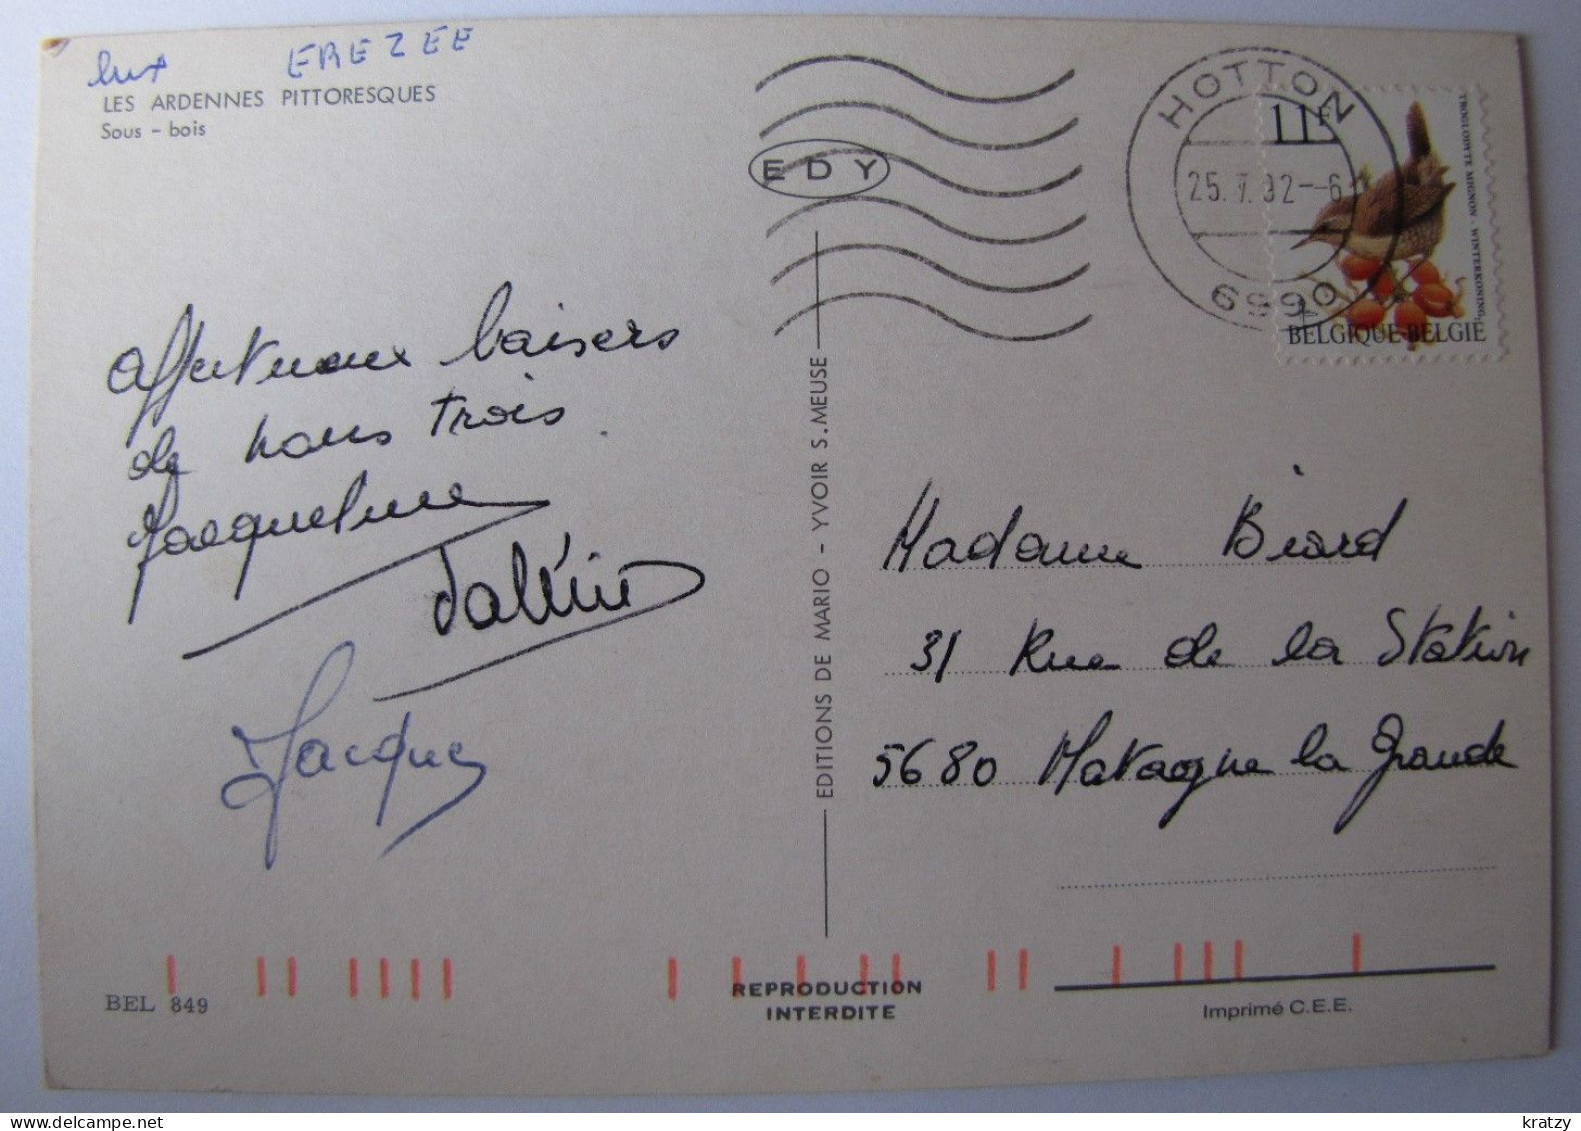 lux EREZEE
LES ARDENNES PITTORESQUES
Sous - bois
EDY
HOTTON
25.7.92--6
6990
11F
TROGLODYTE MIGNON - WINTERKONING
BELGIQUE-BELGIE
Affectueux baisers
de nous trois.
Jacqueline
Jacques
EDITIONS DE MARIO - YVOIR S.MEUSE
Madame Biard
31 Rue de la Station
5680 Matagne la Grande
BEL 849
REPRODUCTION
INTERDITE
Imprimé C.E.E.
kratzy